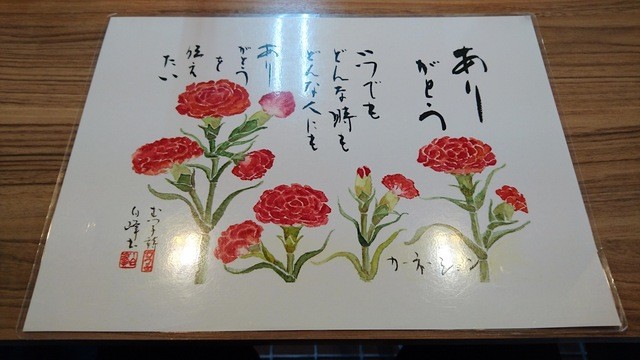 ありがとう
いつでも
どんな時も
どんな人にも
ありがとう
を
伝え
たい
カーネーション
むつ子詩
白峰書